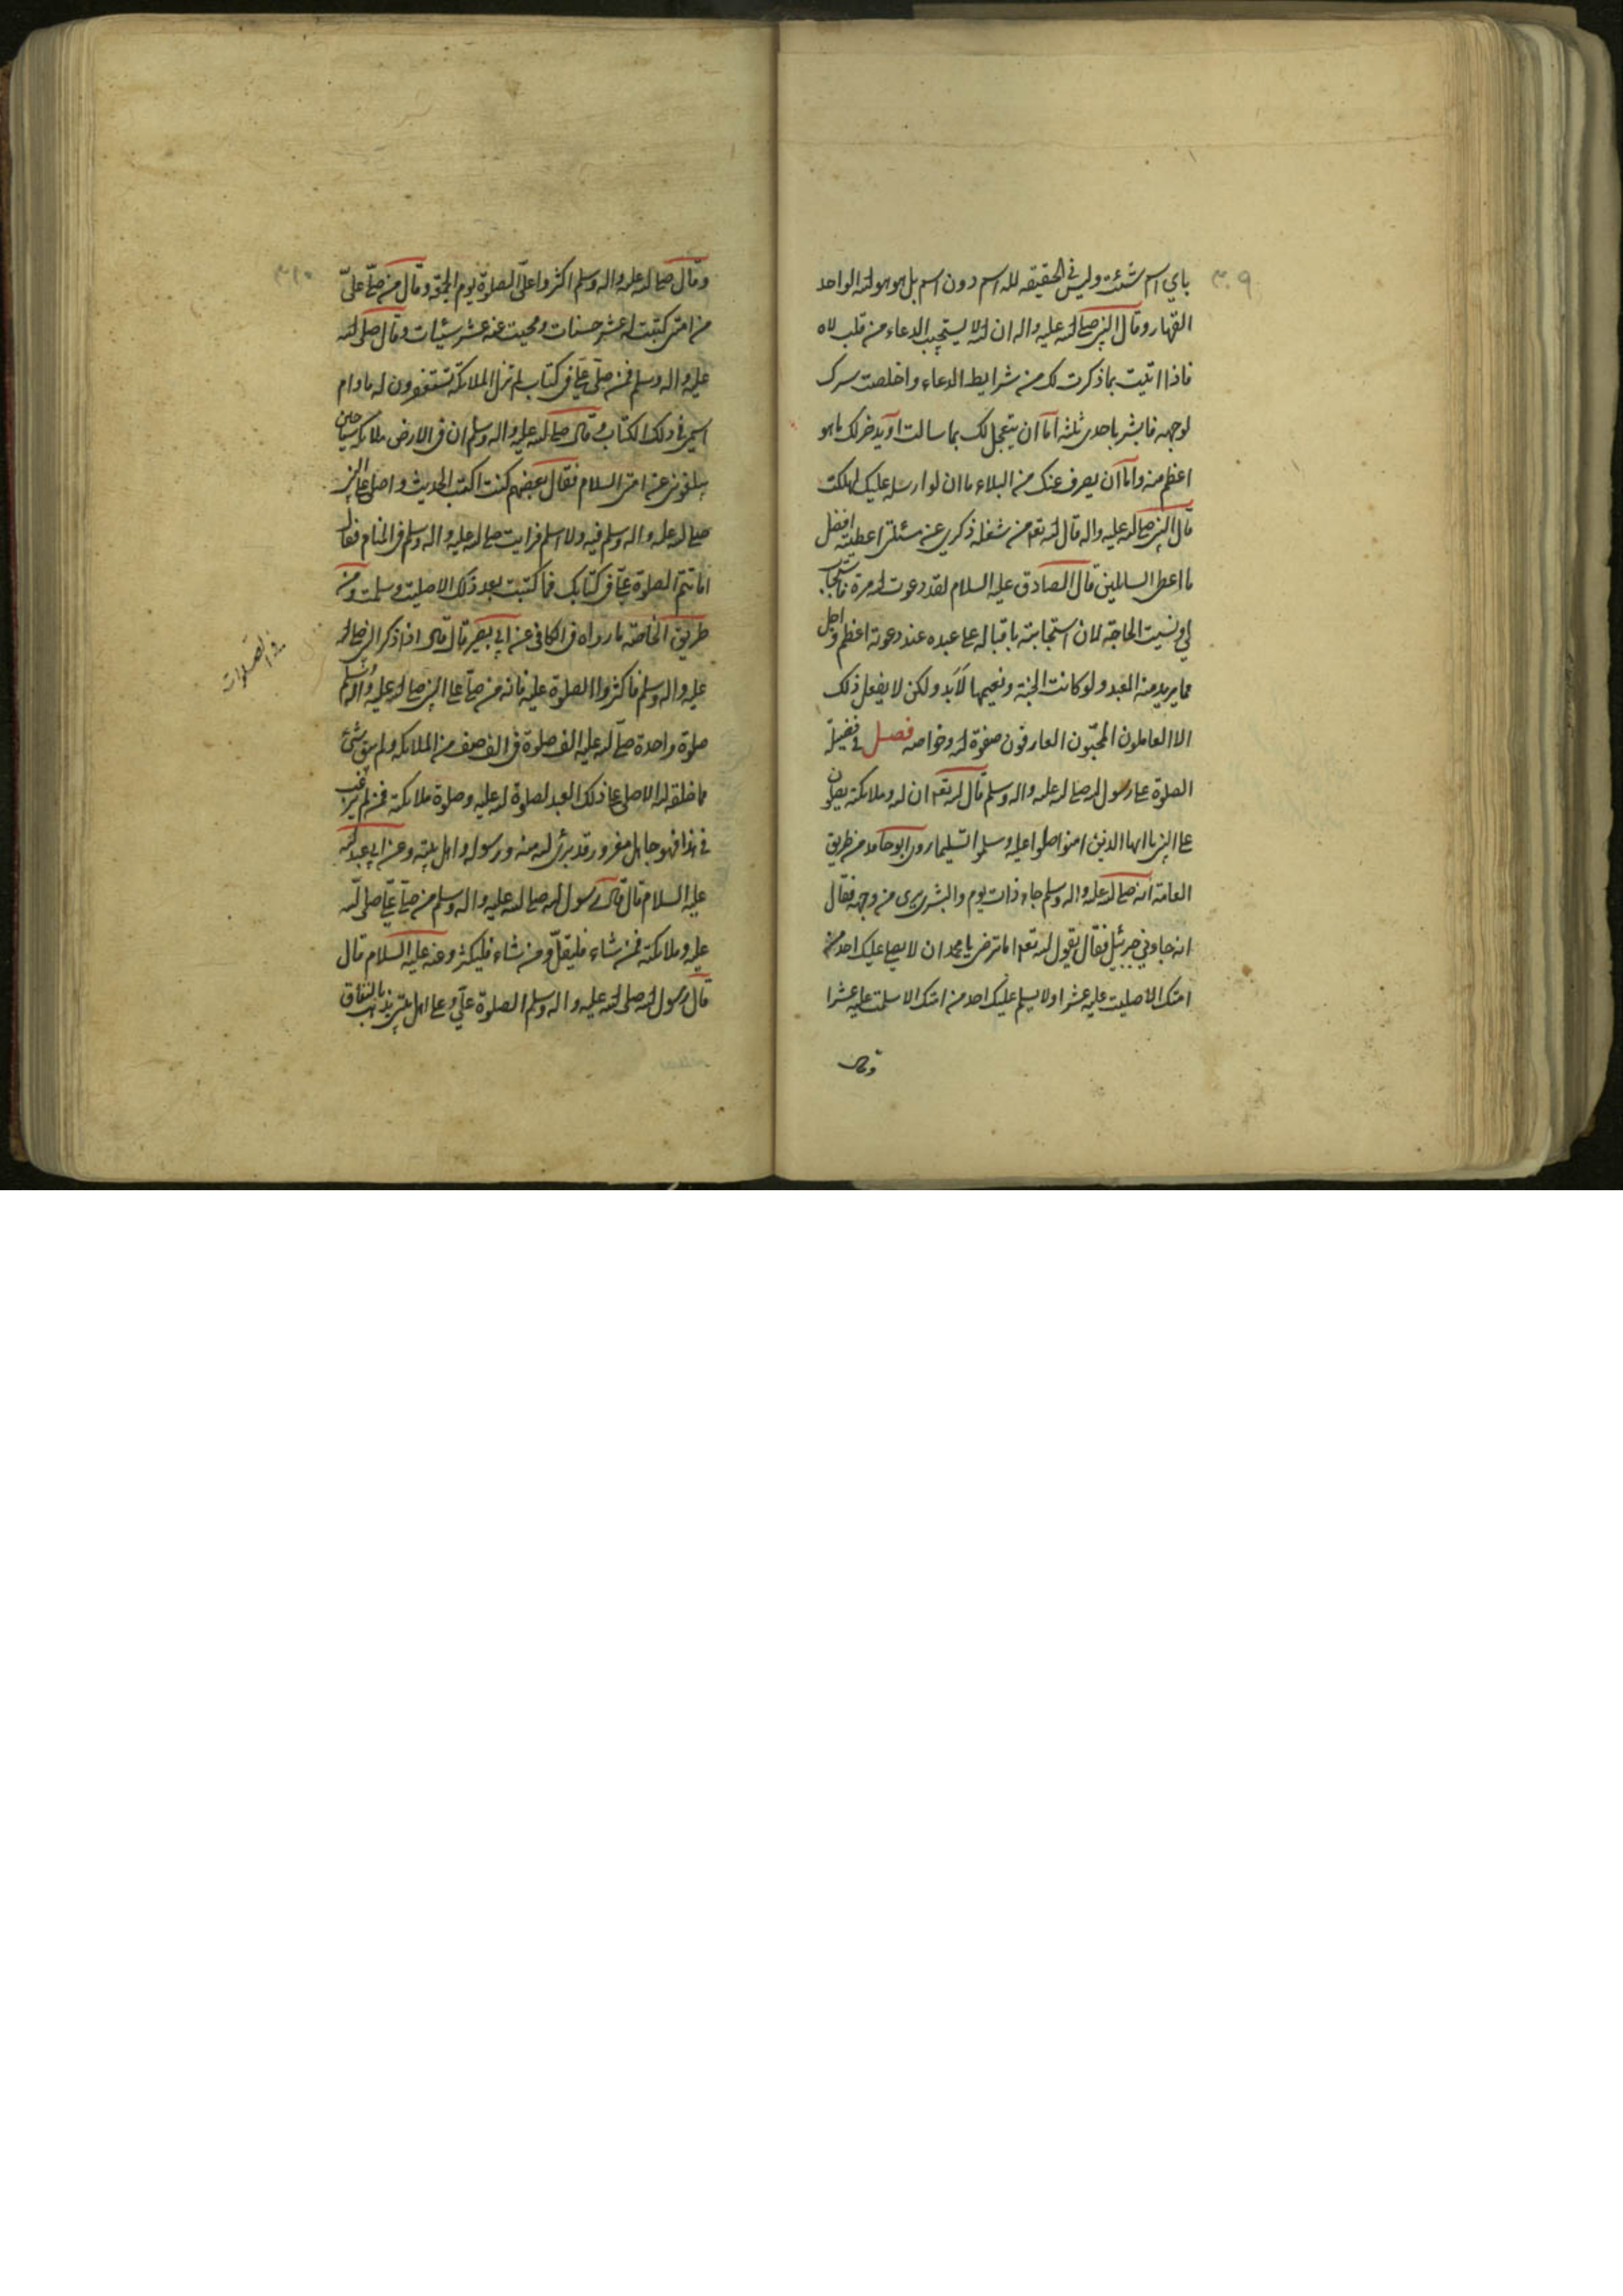 ٣٠٩
باي اسم شئت وليس في الحقيقه لله اسم دون اسم بل هو هو الله الواحد
القهار وقال النبي صلى الله عليه واله ان الله لا يستجيب الدعاء من قلب لاه
فاذا اتيت بما ذكرت لك من شرايط الدعاء واخلصت سرك
لوجهه فابشر باحدى ثلثه اما ان يتعجل لك بما سالت او يدخر لك ما هو
اعظم منه واما ان يصرف عنك من البلاء ما ان لو ارسله عليك لهلكت
قال النبي صلى الله عليه واله قال الله تعه من شغله ذكري عن مسئلتي اعطيته افضل
ما اعطي السائلين قال الصادق عليه السلام لقد دعوت الله مرة فاستجاب
لي ونسيت الحاجة لان استجابته باقباله على عبده عند دعوته اعظم واجل
مما يريد منه العبد ولو كانت الجنة ونعيمها الابد ولكن لا يفعل ذلك
الا العاملون المحبّون العارفون صفوة الله وخواصه فصل في فضيلة
الصلوة على رسول الله صلى الله عليه واله وسلم قال الله تعه ان الله وملائكته يصلون
على النبي يا ايها الذين امنوا صلوا عليه وسلموا تسليما روى ابو حامد من طريق
العامة انه صلى الله عليه واله وسلم جاء ذات يوم والبشرى يرى من وجهه فقال
انه جاءني جبرئيل فقال يقول الله تعه اما ترضى يا محمد ان لا يصلي عليك احد من
امتك الا صليت عليه عشرا ولا يسلم عليك احد من امتك الا سلمت عليه عشرا
وقال
٣١٠
وقال صلى الله عليه واله وسلم اكثروا علىّ الصلوة يوم الجمعة وقال من صلّى علىّ
من امتي كتبت له عشر حسنات ومحيت عنه عشر سيئات وقال صلى الله
عليه واله وسلم فمن صلّى عليّ في كتاب لم تزل الملائكة تستغفرون له مادام
اسمي في ذلك الكتاب وقال صلى الله عليه واله وسلم ان في الارض ملائكة سياحين
يبلغوني عن امتي السلام فقال بعضهم كنت اكتب الحديث واصلي على النبي
صلى الله عليه واله وسلم فيه ولا اسلم فرايت صلى الله عليه واله وسلم في المنام فقال
اما تتم الصلوة عليّ في كتابك فما كتبت بعد ذلك الا صليت وسلمت ومن
طريق الخاصة ما رواه في الكافي عن ابي بصير قال قال اذا ذكر النبي صلى الله
عليه واله وسلم فاكثروا الصلوة عليه فانه من صلّى على النبي صلى الله عليه واله وسلم
صلوة واحدة صلّى الله عليه الف صلوة في الف صف من الملائكة ولم يبق شئ
مما خلقه الله الا صلى على ذلك العبد لصلوة الله عليه وصلوة ملائكته فمن لم يرغب
في هذا فهو جاهل مغرور قد برئ الله منه ورسوله واهل بيته وعن ابي عبد الله
عليه السلام قال قال رسول الله صلى الله عليه واله وسلم من صلّى عليّ صلى الله
عليه وملائكته فمن شاء فليقلّ ومن شاء فليكثر وعنه عليه السلام قال
قال رسول الله صلى الله عليه واله وسلم الصلوة عليّ وعلى اهل بيتي تذهب بالنفاق